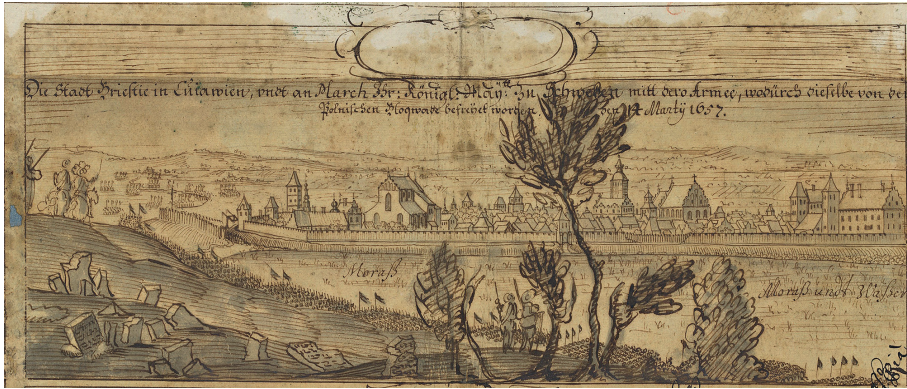 Die Stadt Briestie in Cuiawien, undt an March Ihr: Königl: May: Zu Schweden mitt dero Armee, wodurch dieselbe von der
Polnischen Bloqwade befreÿet worden den 14 Martÿ 1657.
Moraß
Moraß undt Waßer